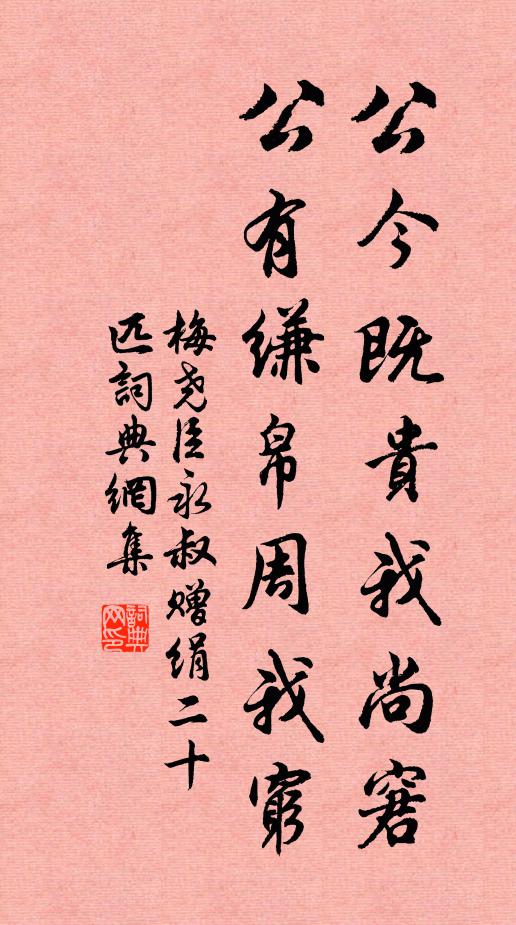 公今既貴我尚窘
公有縑帛周我窮
梅尧臣永叔赠絹二十
匹詞典網集
詞典
网印